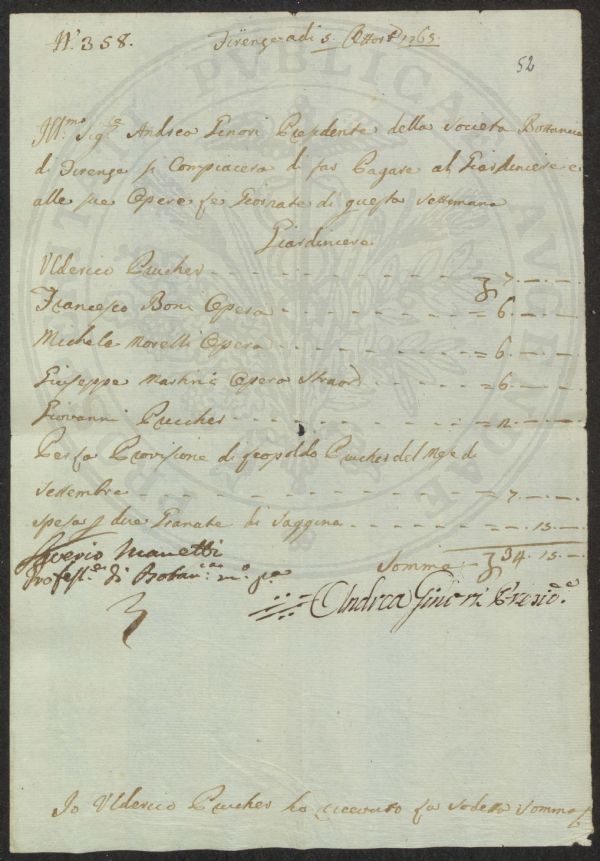 N.° 358.
Firenze adi 5 Ottobre 1765
52
Ill.mo Sig.re Andrea Ginori Presidente della Societa Bottanica
di Firenze si Compiacera di far Pagare al Giardiniere e
alle sue Opere le Giornate di questa Settimana
Giardiniere
Ulderico Prucher - - - - 7. — . —
Francesco Boni Opera - - - - = 6. — . —
Michele Morelli Opera - - - - = 6. — . —
Giuseppe Martini Opera Straord. - - = 6. — . —
Giovanni Prucher - - - - = 2. — . —
Per la Provisione di Leopoldo Prucher del Mese di
Settembre - - - - = 7. — . —
Spesa p due Granate di Saggina - - - - 13. —
Somma 34. 13. —
Saverio Manetti
Profess.re di Botan.ca m.o p.a
Andrea Ginori Presid.e
Io Ulderico Prucher ho ricevuto la sodetta Somma
PUBLICAE
AUGENDAE